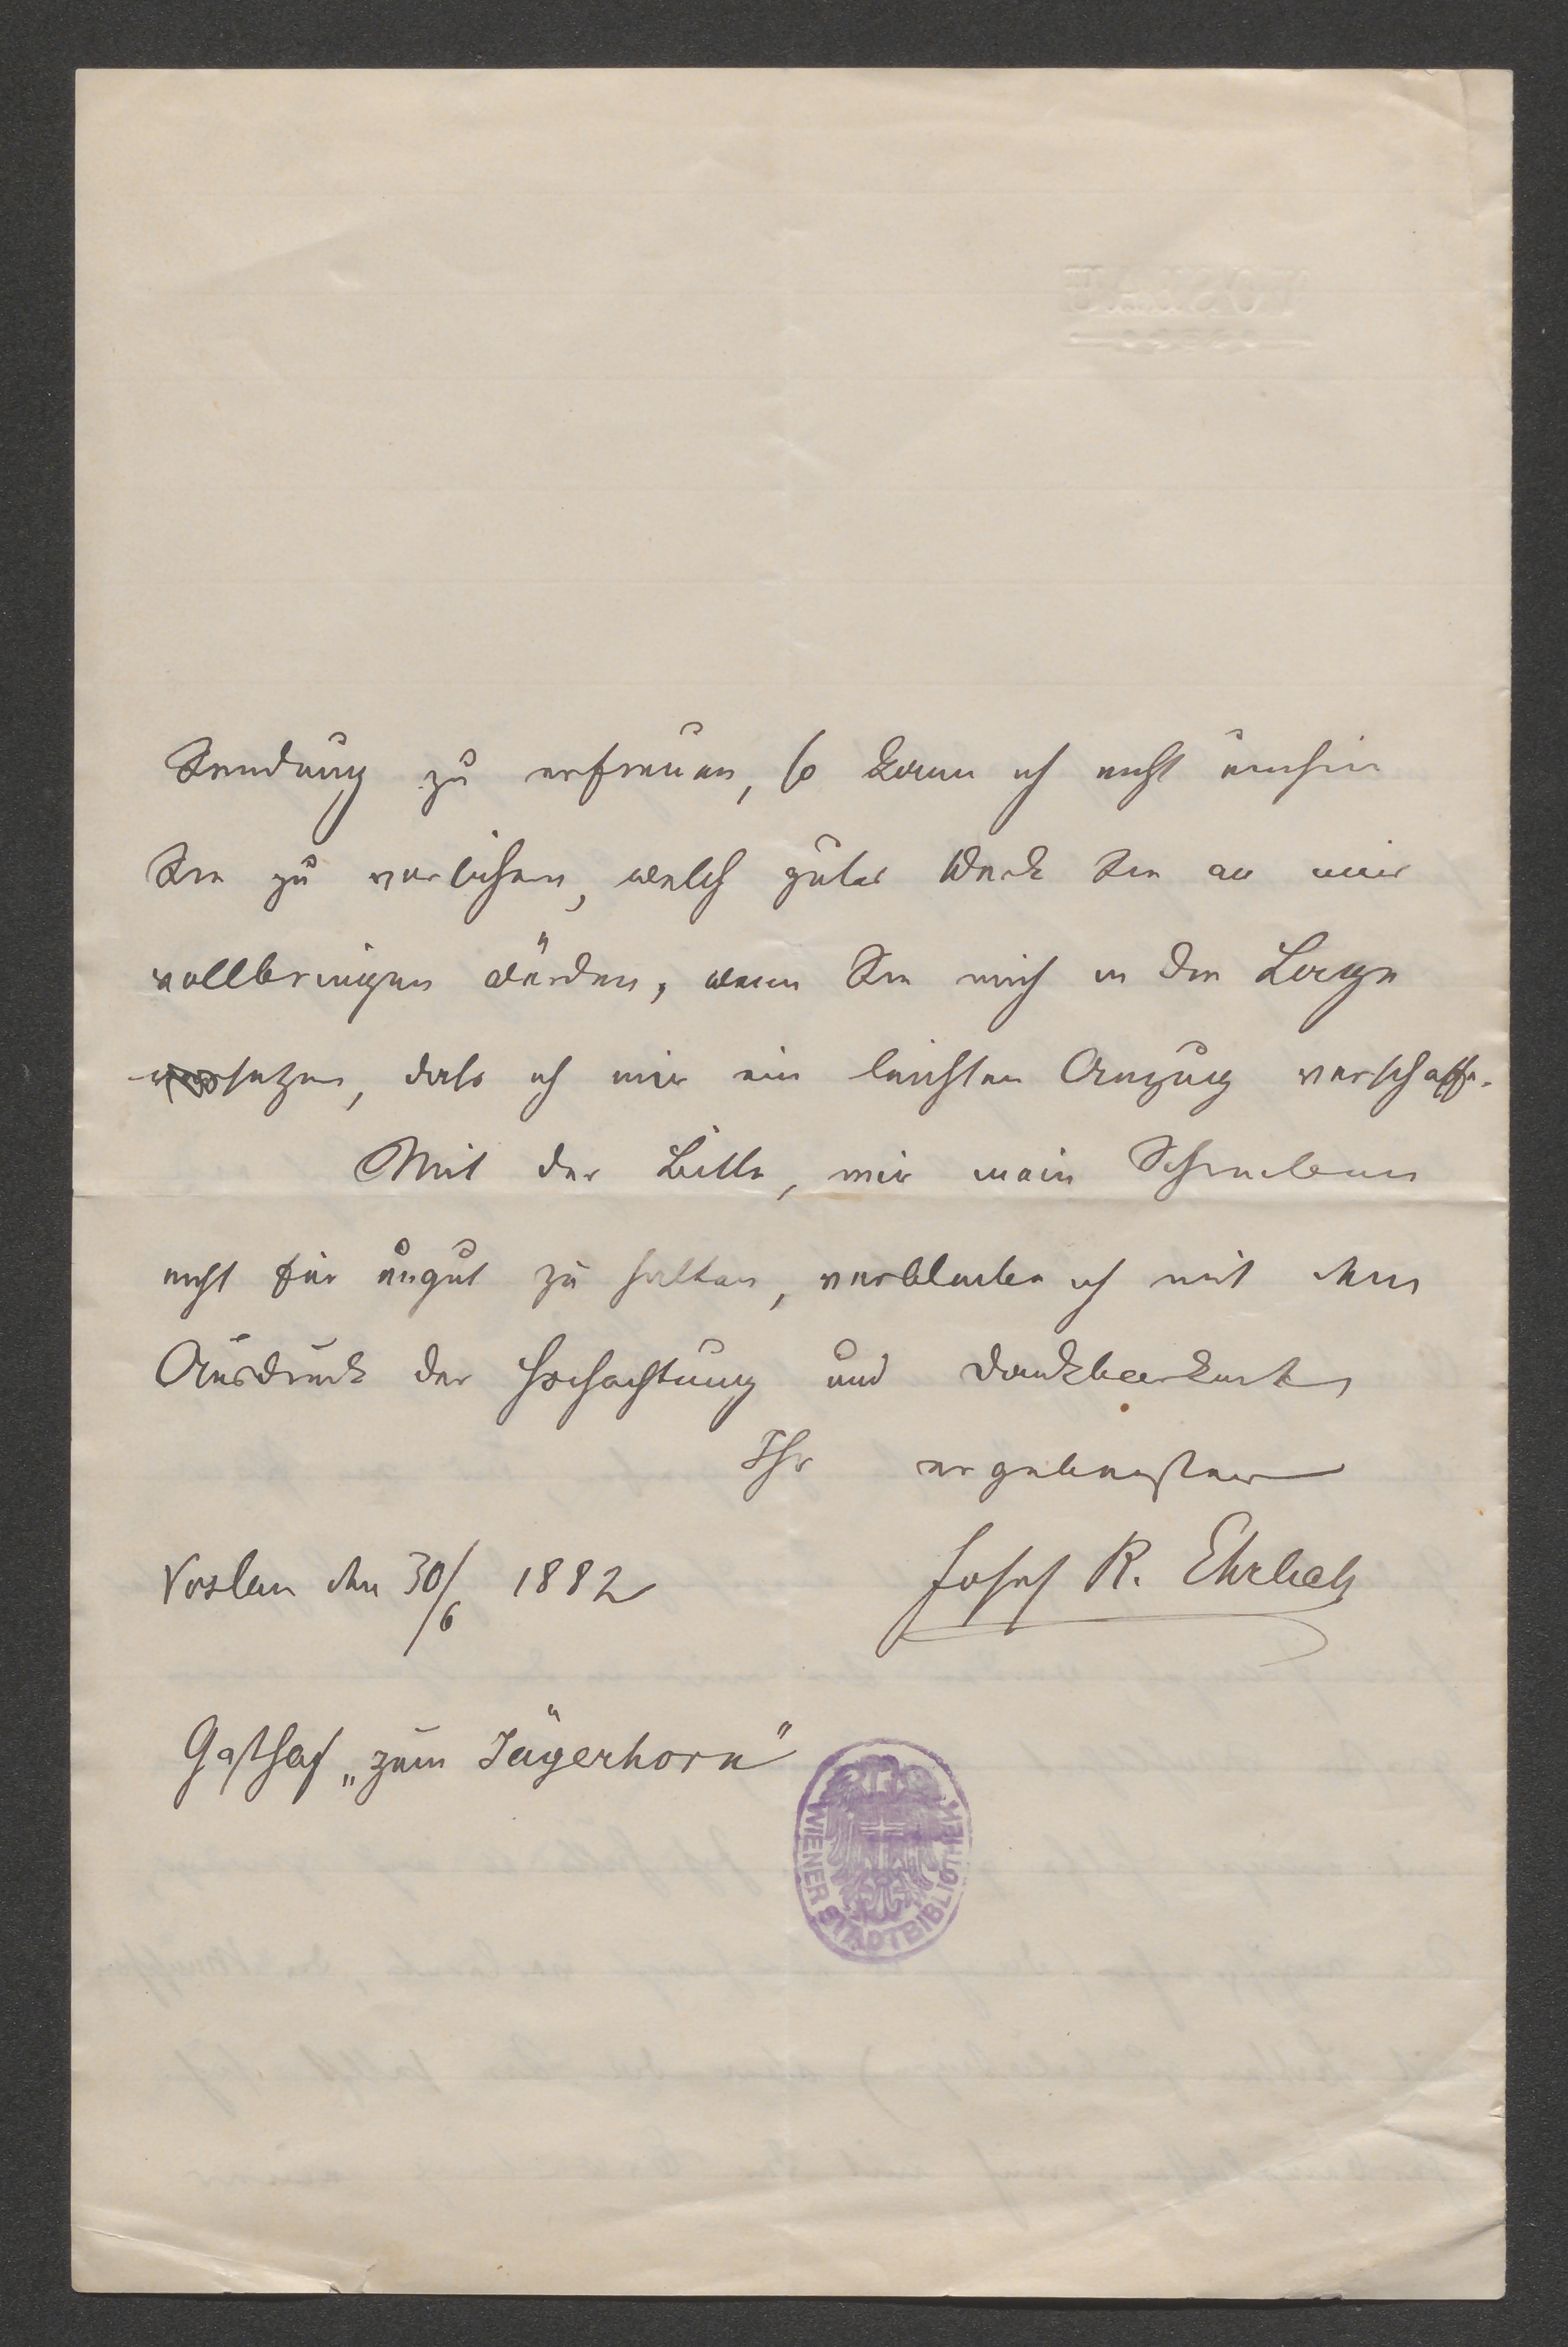 VÖSLAU
Sendung zu erfreuen, so kann ich nicht umhin
Sie zu versichern, welch gutes Werk Sie an mir
vollbringen würden, wenn Sie mich in die Lage
setzen, dass ich mir ein leichten Anzug verschaffe.
Mit der Bitte, mir mein Schreiben
nicht für ungut zu halten, verbleibe ich mit dem
Ausdruck der Hochachtung und Dankbarkeit
Ihr ergebenster
Voslau den 30/6 1882 Josef R. Ehrlich
Gasthof „zum Jägerhorn"
WIENER STADTBIBLIOTHEK